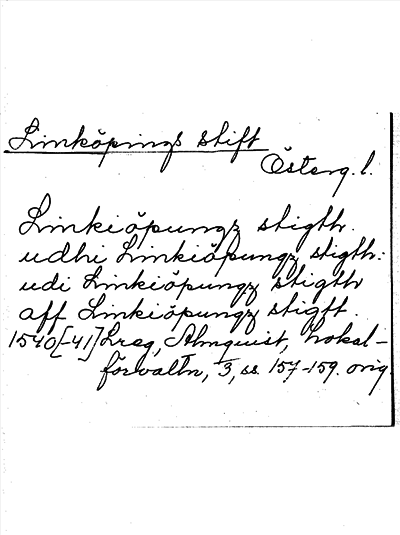 Linköpings stift
Österg. l.
Linkiöpungz stigth.
udhi Linkiöpungz stigth:
udi Linkiöpungz stigth
aff Linkiöpungz stigft.
1540[-41] Lreg, Almquist, Lokal-
förvaltn, I 3, ss. 157-159. orig.